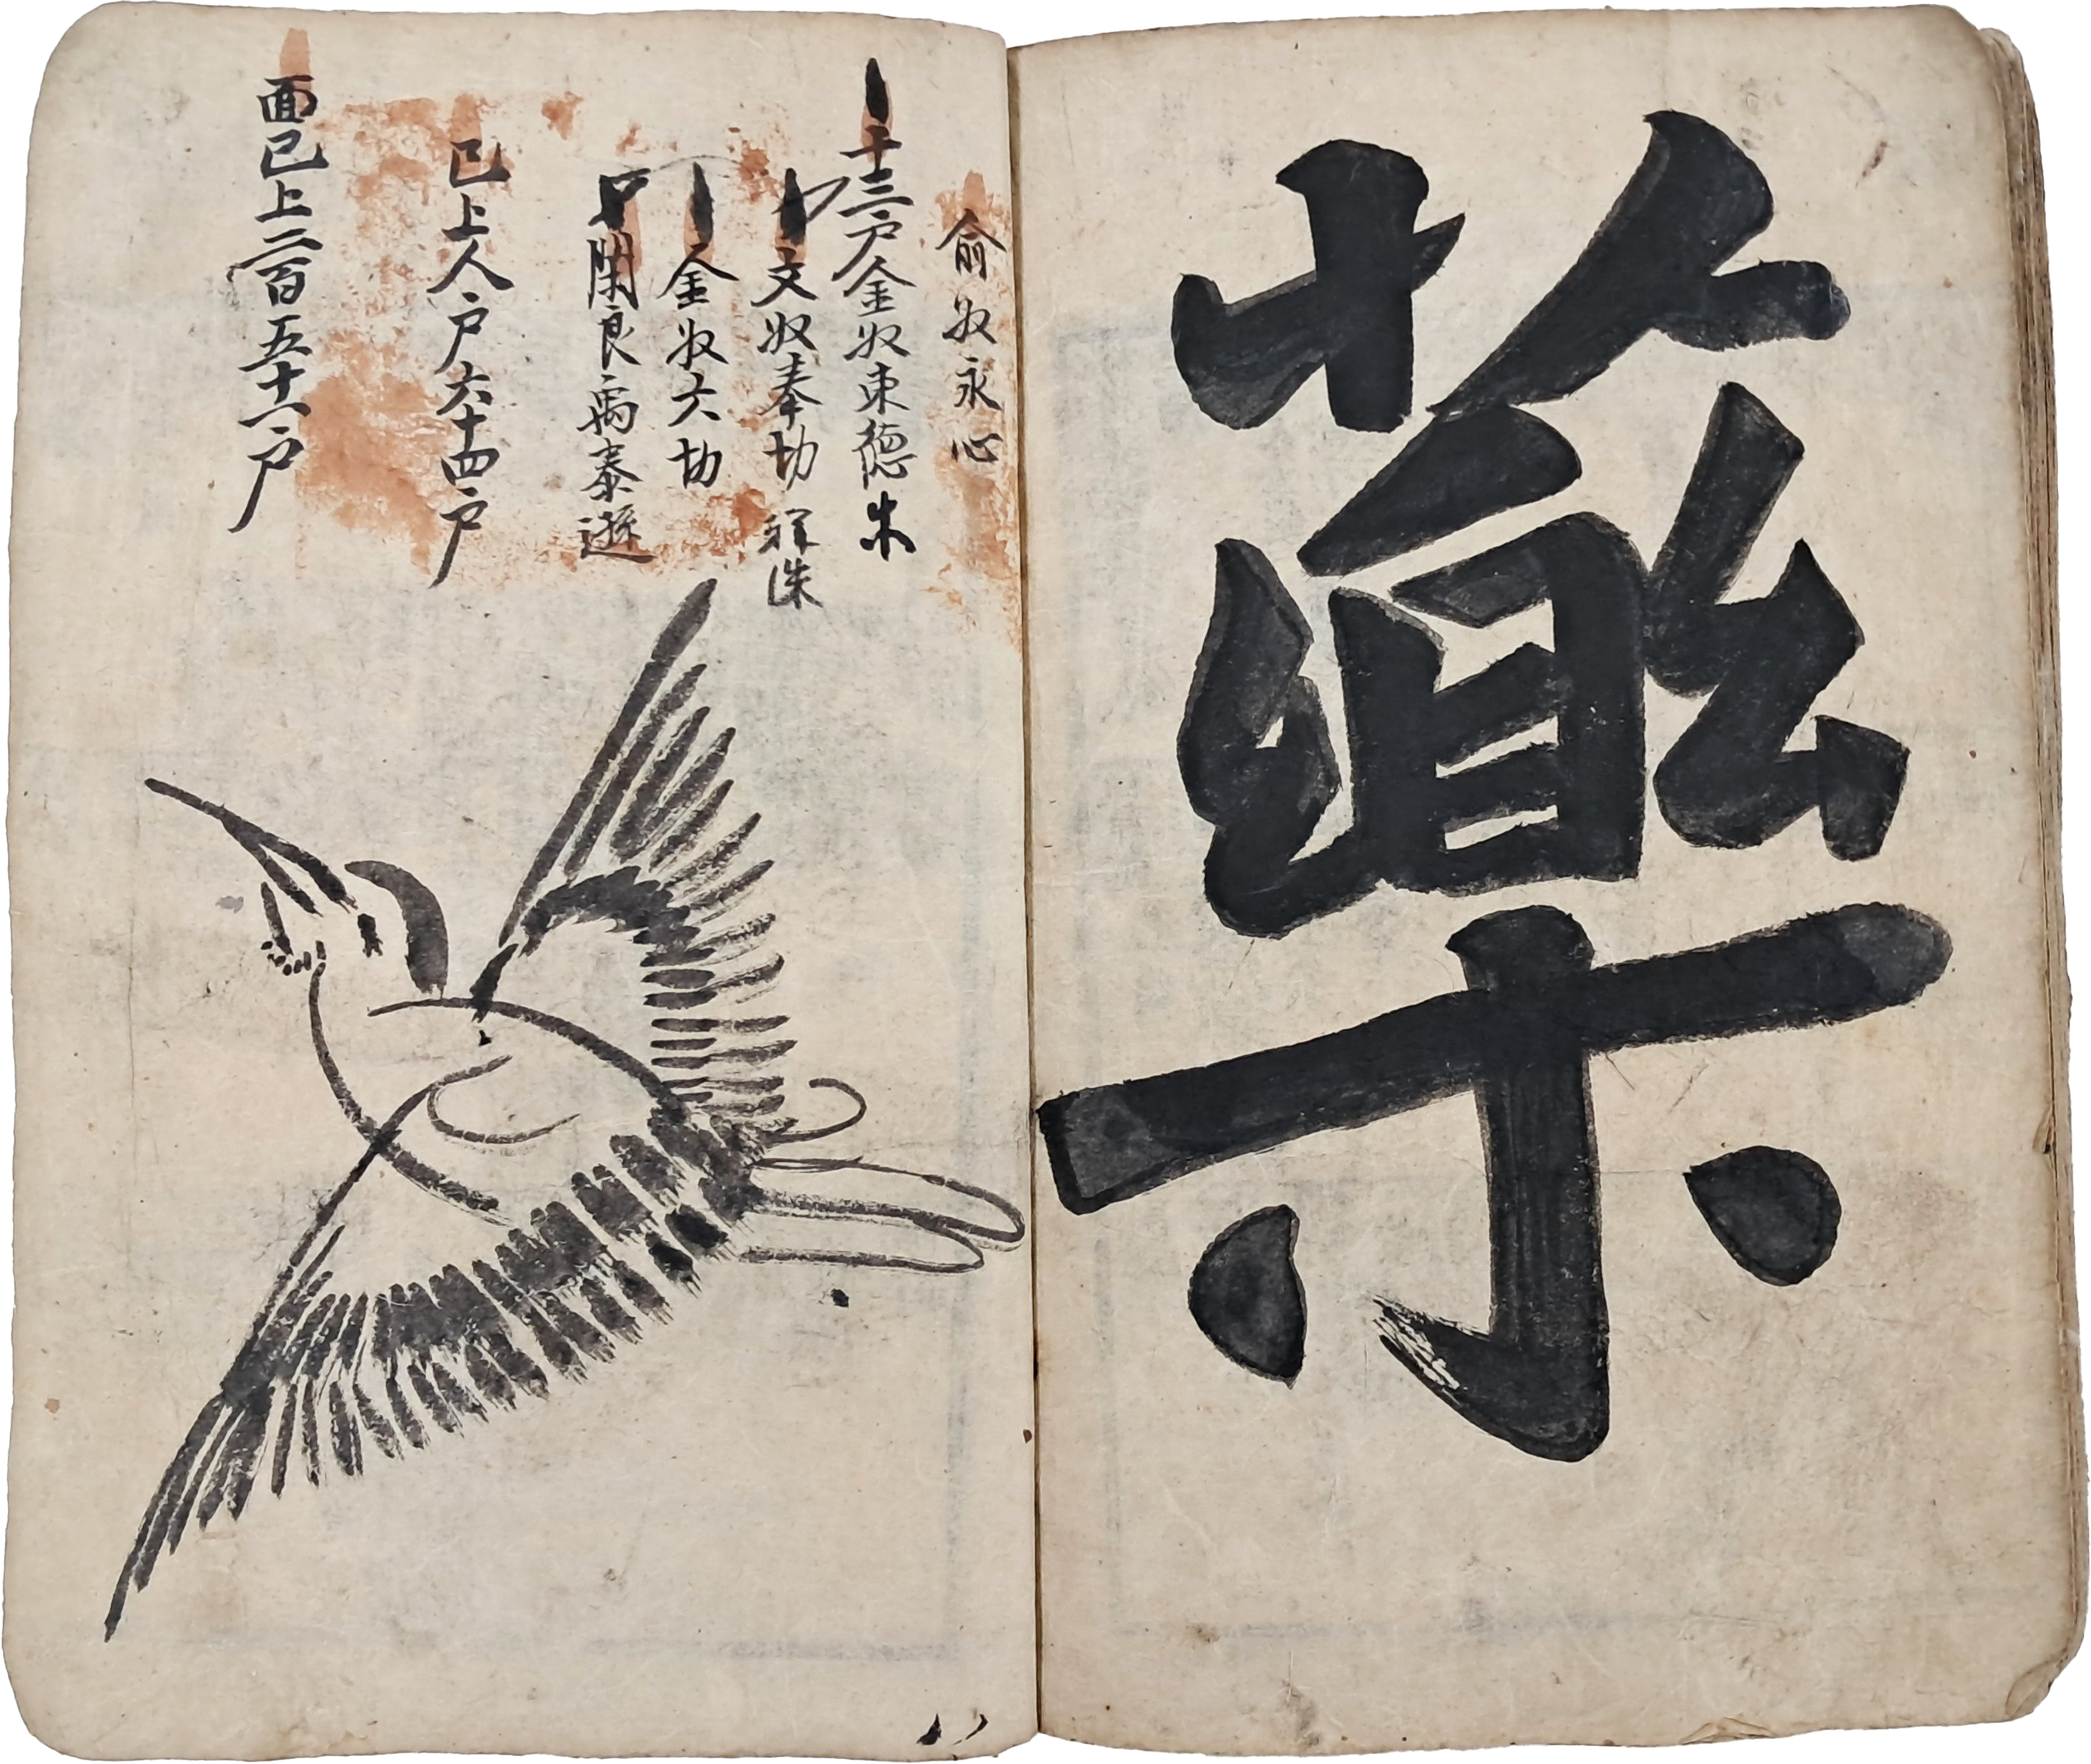 藥
俞奴永心
十三戶金奴東德
文奴奉切
金奴六切
閑良禹泰遜
已上人戶六十四戶
面已上二百五十一戶